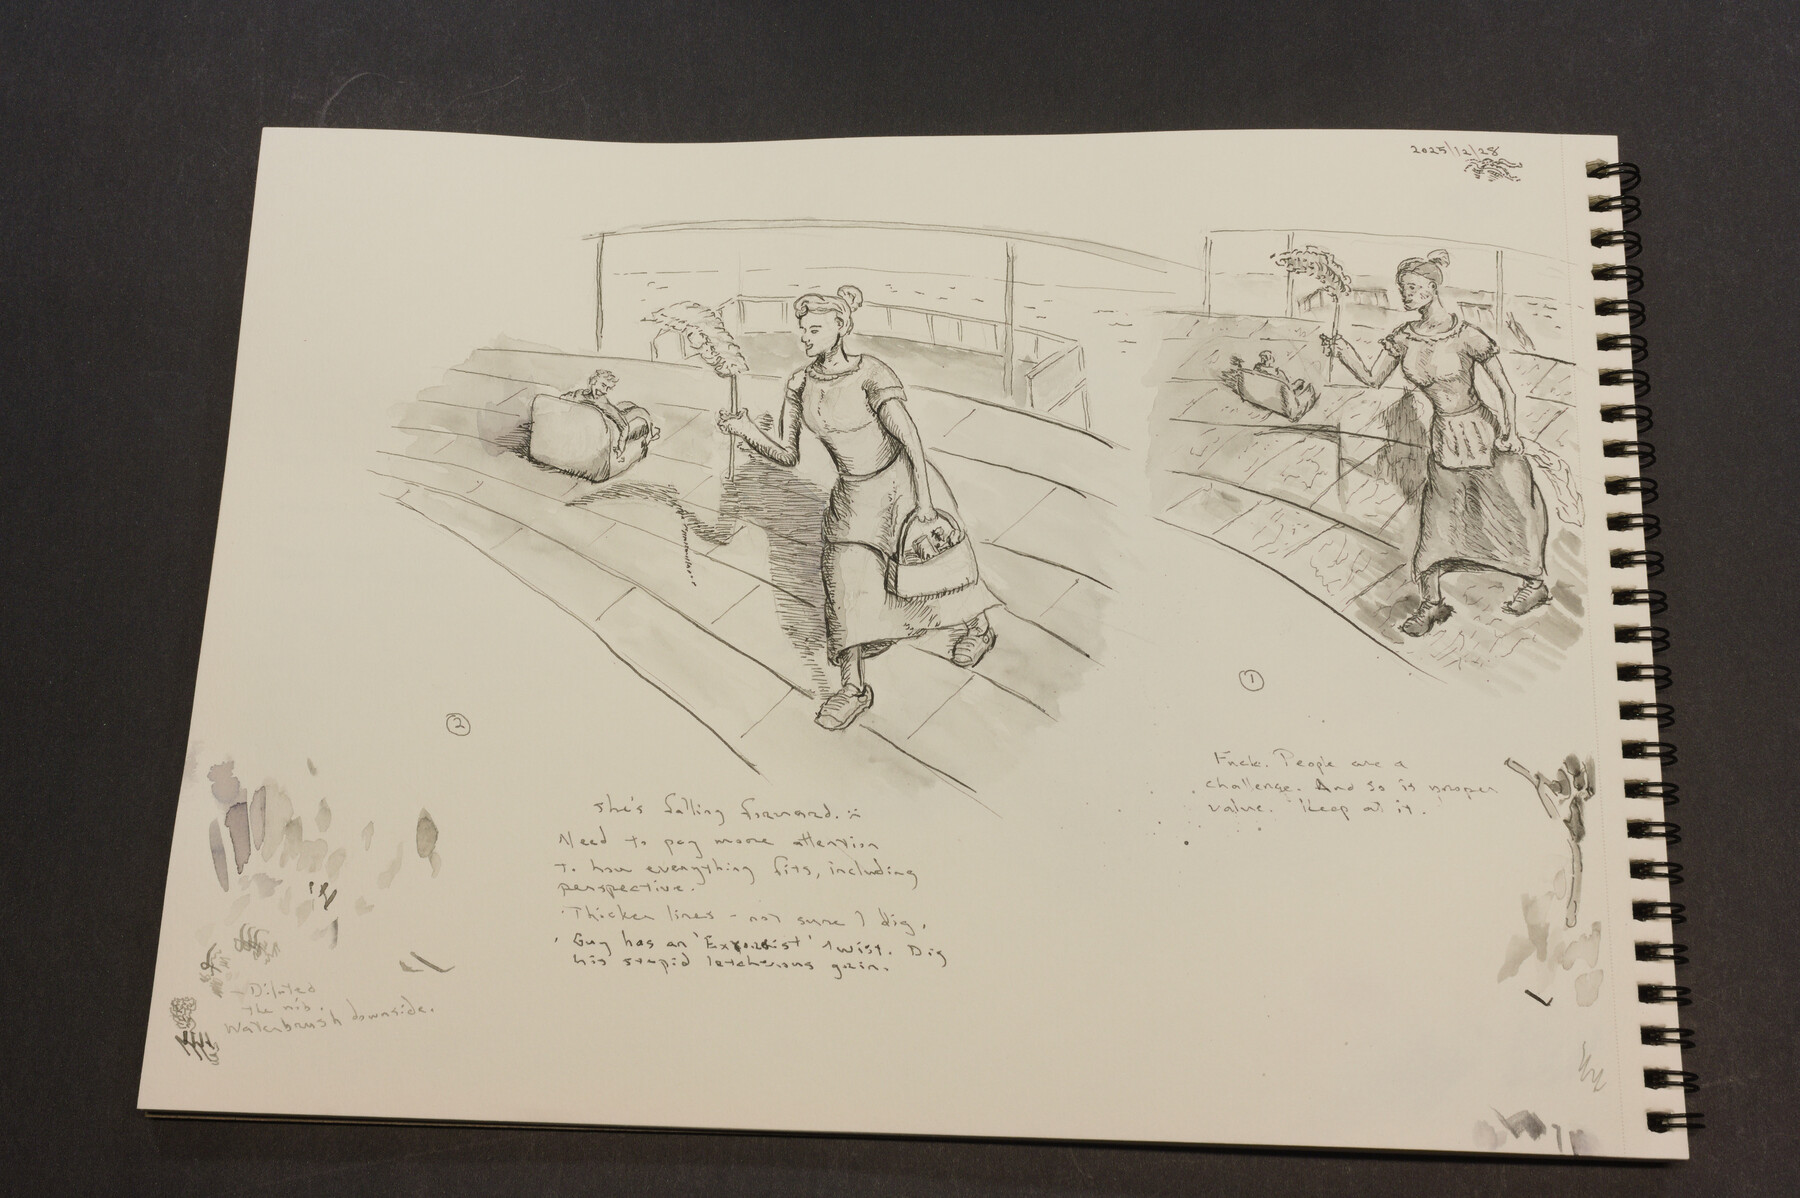 2025/12/28
①
Fuck. People are a
challenge. And so is proper
value. Keep at it.
②
She's falling forward. :(
Need to pay more attention
to how everything fits, including
perspective.
· Thicker lines - not sure I dig.
· Guy has an 'Exorcist' twist. Dig
his stupid lecherous grin.
- Diluted
the nib.
Waterbrush downside.